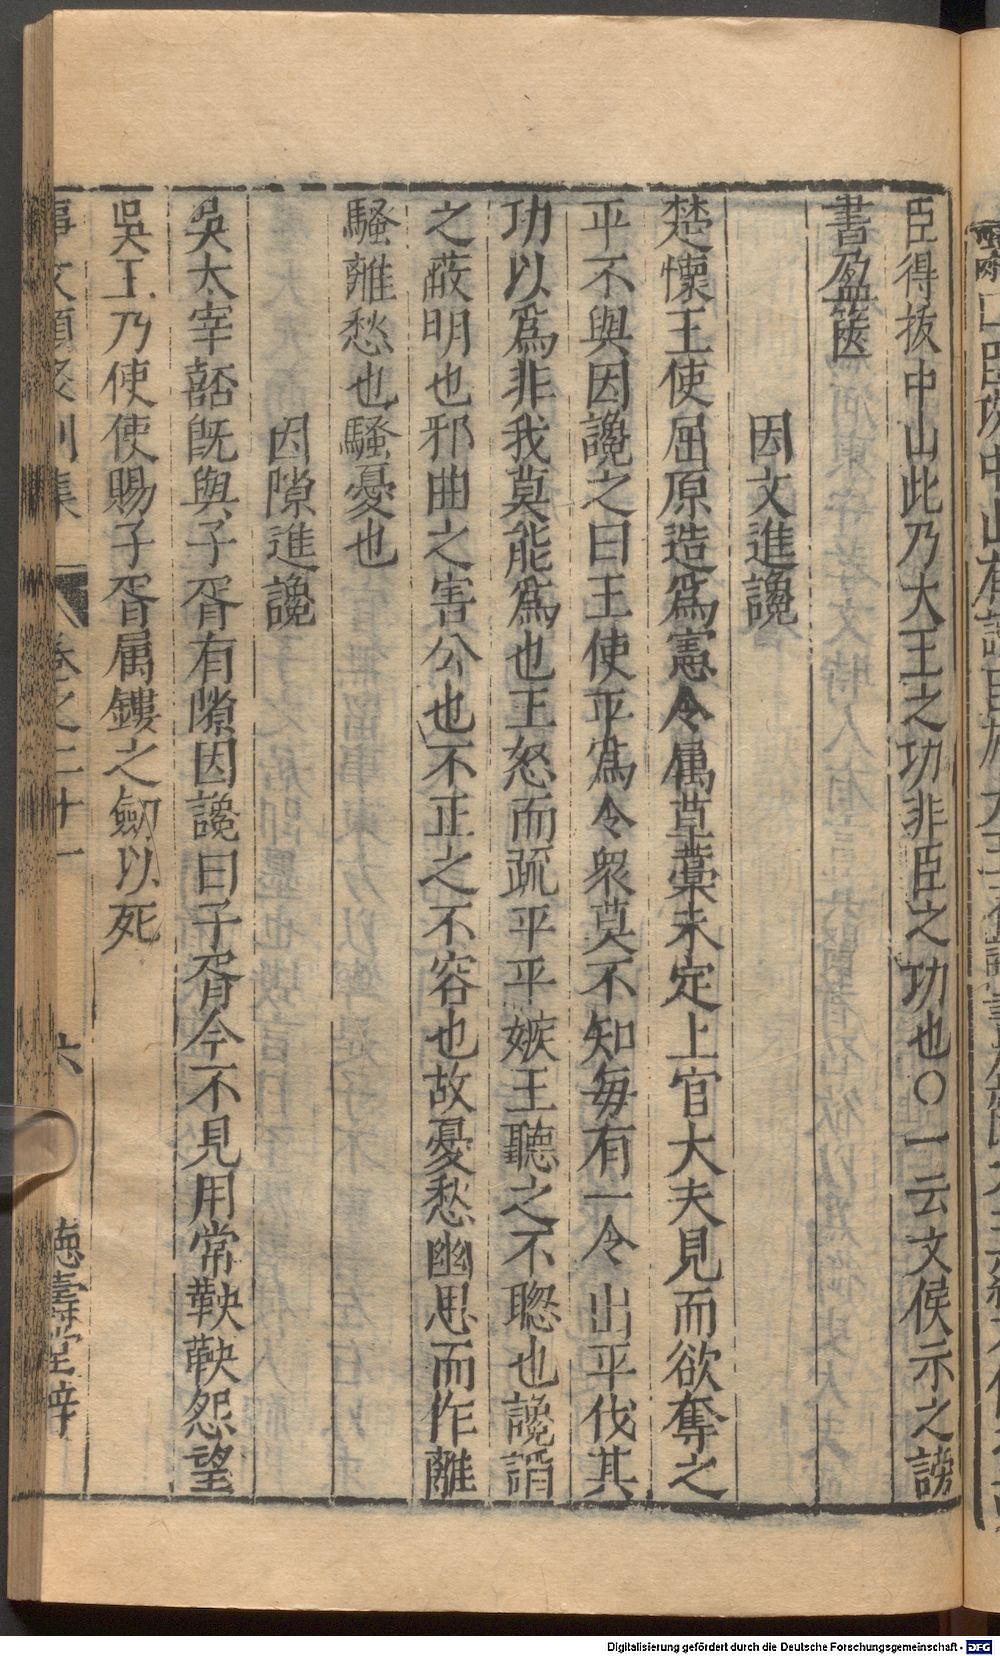 臣得拔中山此乃大王之功非臣之功也○一云文侯示之謗
書盈篋
因文進讒
楚懷王使屈原造爲憲令属草藁未定上官大夫見而欲奪之
平不與因讒之曰王使平爲令衆莫不知每有一令出平伐其
功以爲非我莫能爲也王怒而疏平平嫉王聽之不聦也讒謟
之蔽明也邪曲之害公也不正之不容也故憂愁幽思而作離
騷離愁也騷憂也
因隙進讒
吳太宰嚭旣與子胥有隙因讒曰子胥今不見用常鞅鞅怨望
吳王乃使使賜子胥属鏤之劒以死
事文類聚別集 卷之二十一 六 德壽堂梓
Digitalisierung gefördert durch die Deutsche Forschungsgemeinschaft - DFG